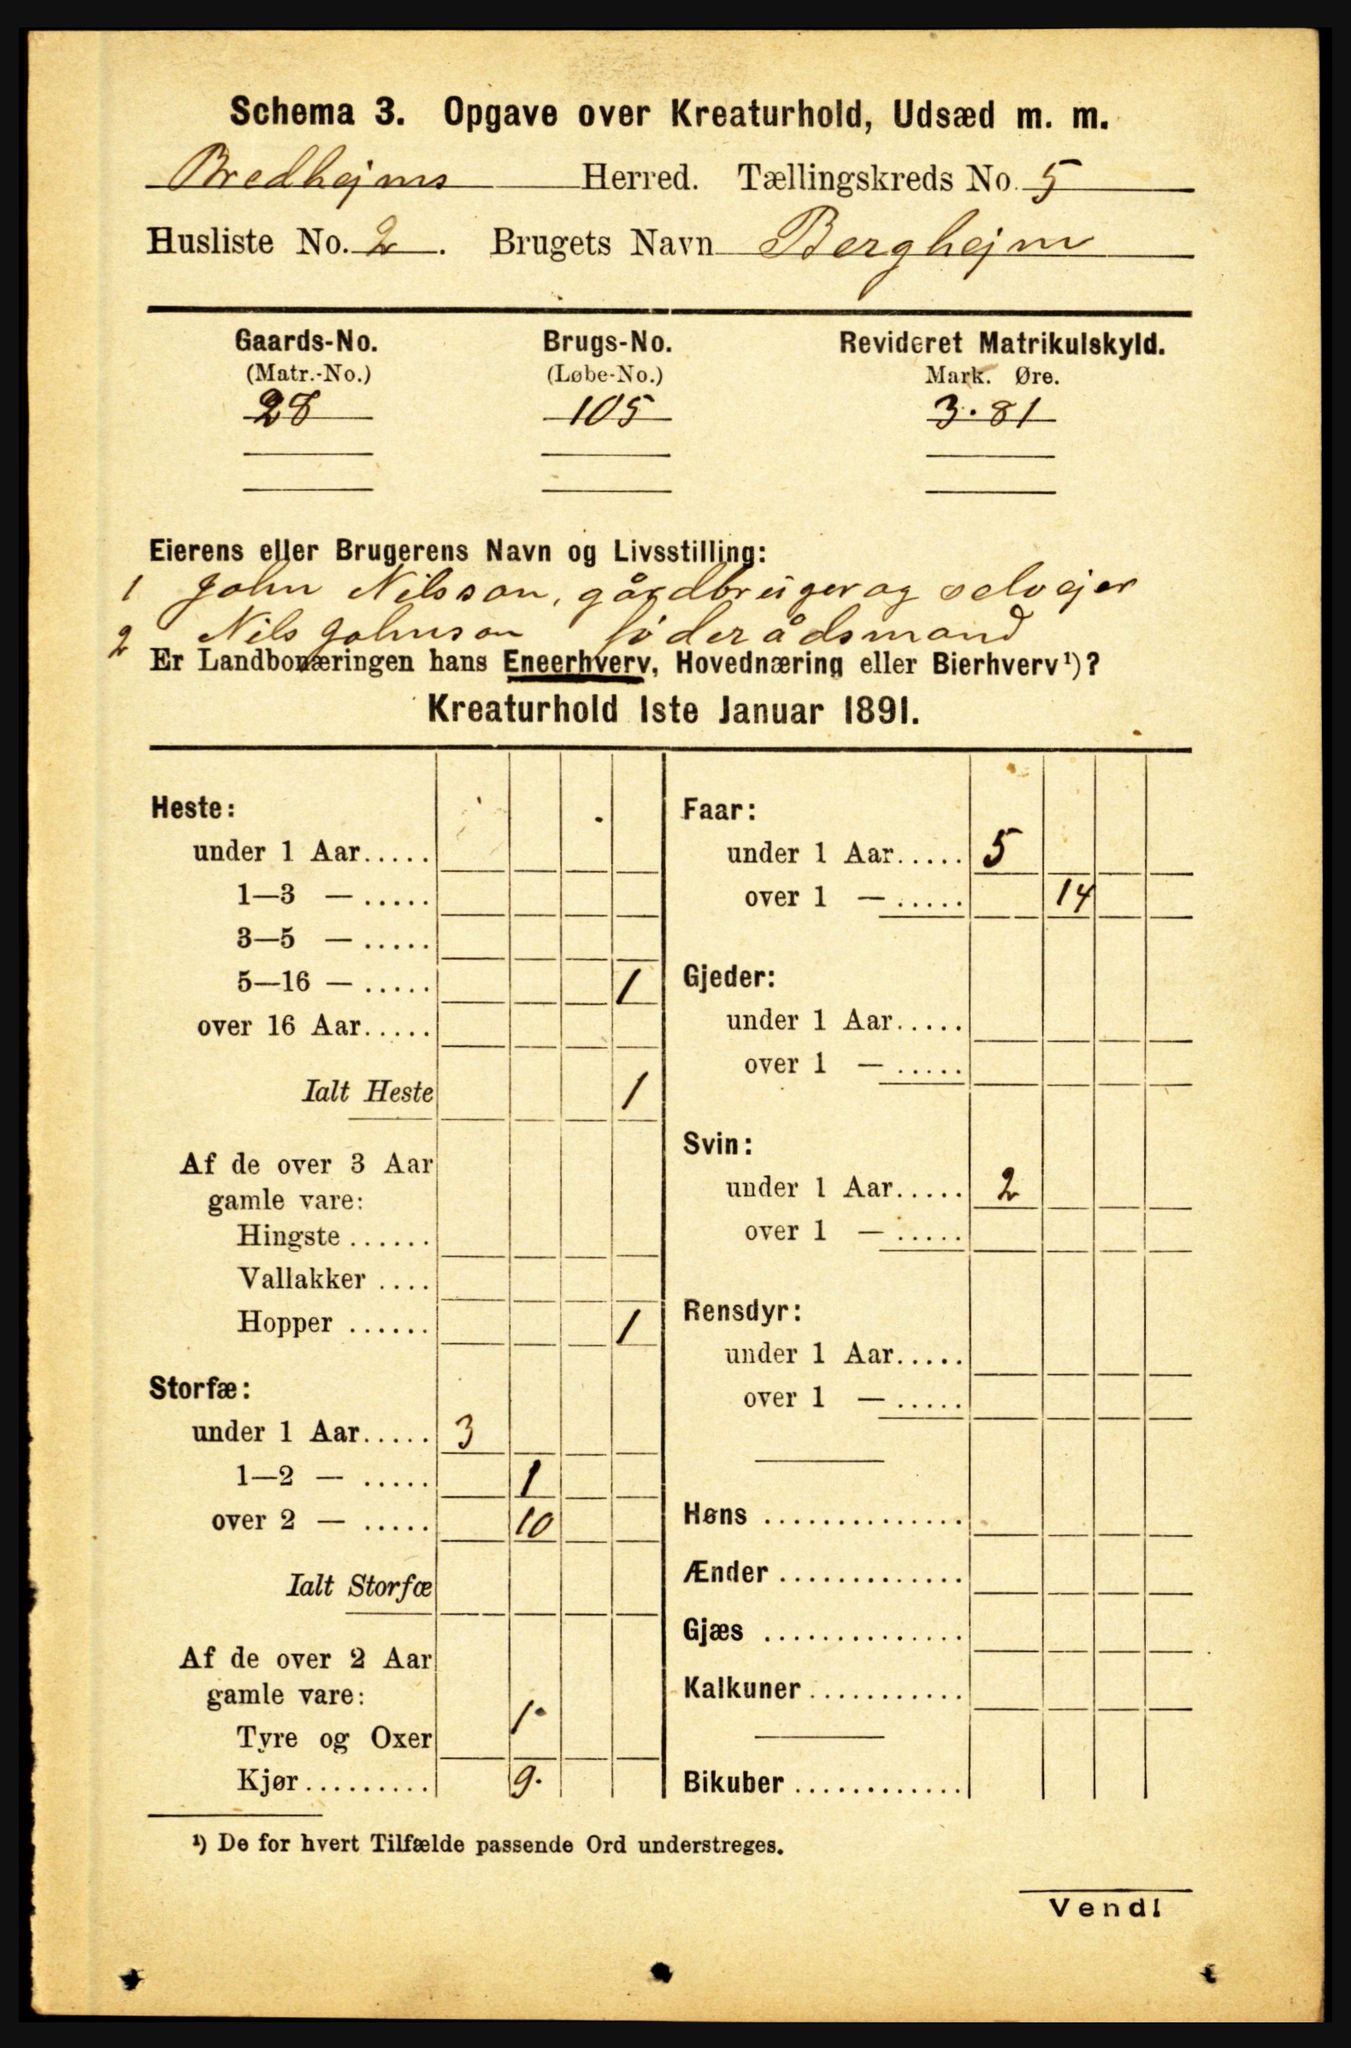 Schema 3. Opgave over Kreaturhold, Udsæd m. m.
Bredhejms Herred. Tællingskreds No. 5
Husliste No. 2. Brugets Navn Berghejm
Gaards-No. Brugs-No. Revideret Matrikulskyld.
(Matr.-No.) (Løbe-No.) Mark. Øre.
28 105 3.81
Eierens eller Brugerens Navn og Livsstilling:
1 John Nilsson, gårdbruger og selvejer
2 Nils Johnson föderådsmand
Er Landbonæringen hans Eneerhverv, Hovednæring eller Bierhverv¹)?
Kreaturhold 1ste Januar 1891.
Heste:
under 1 Aar.....
1—3 — .....
3—5 — .....
5—16 — ..... 1
over 16 Aar.....
Ialt Heste 1
Af de over 3 Aar
gamle vare:
Hingste ......
Vallakker ....
Hopper ...... 1
Storfæ:
under 1 Aar..... 3
1—2 — ..... 1
over 2 — ..... 10
Ialt Storfæ
Af de over 2 Aar
gamle vare:
Tyre og Oxer 1.
Kjør......... 9.
Faar:
under 1 Aar..... 5
over 1 — ..... 14
Gjeder:
under 1 Aar.....
over 1 — .....
Svin:
under 1 Aar..... 2
over 1 — .....
Rensdyr:
under 1 Aar.....
over 1 — .....
Høns ..............
Ænder .............
Gjæs ..............
Kalkuner...........
Bikuber ............
¹) De for hvert Tilfælde passende Ord understreges.
Vend!